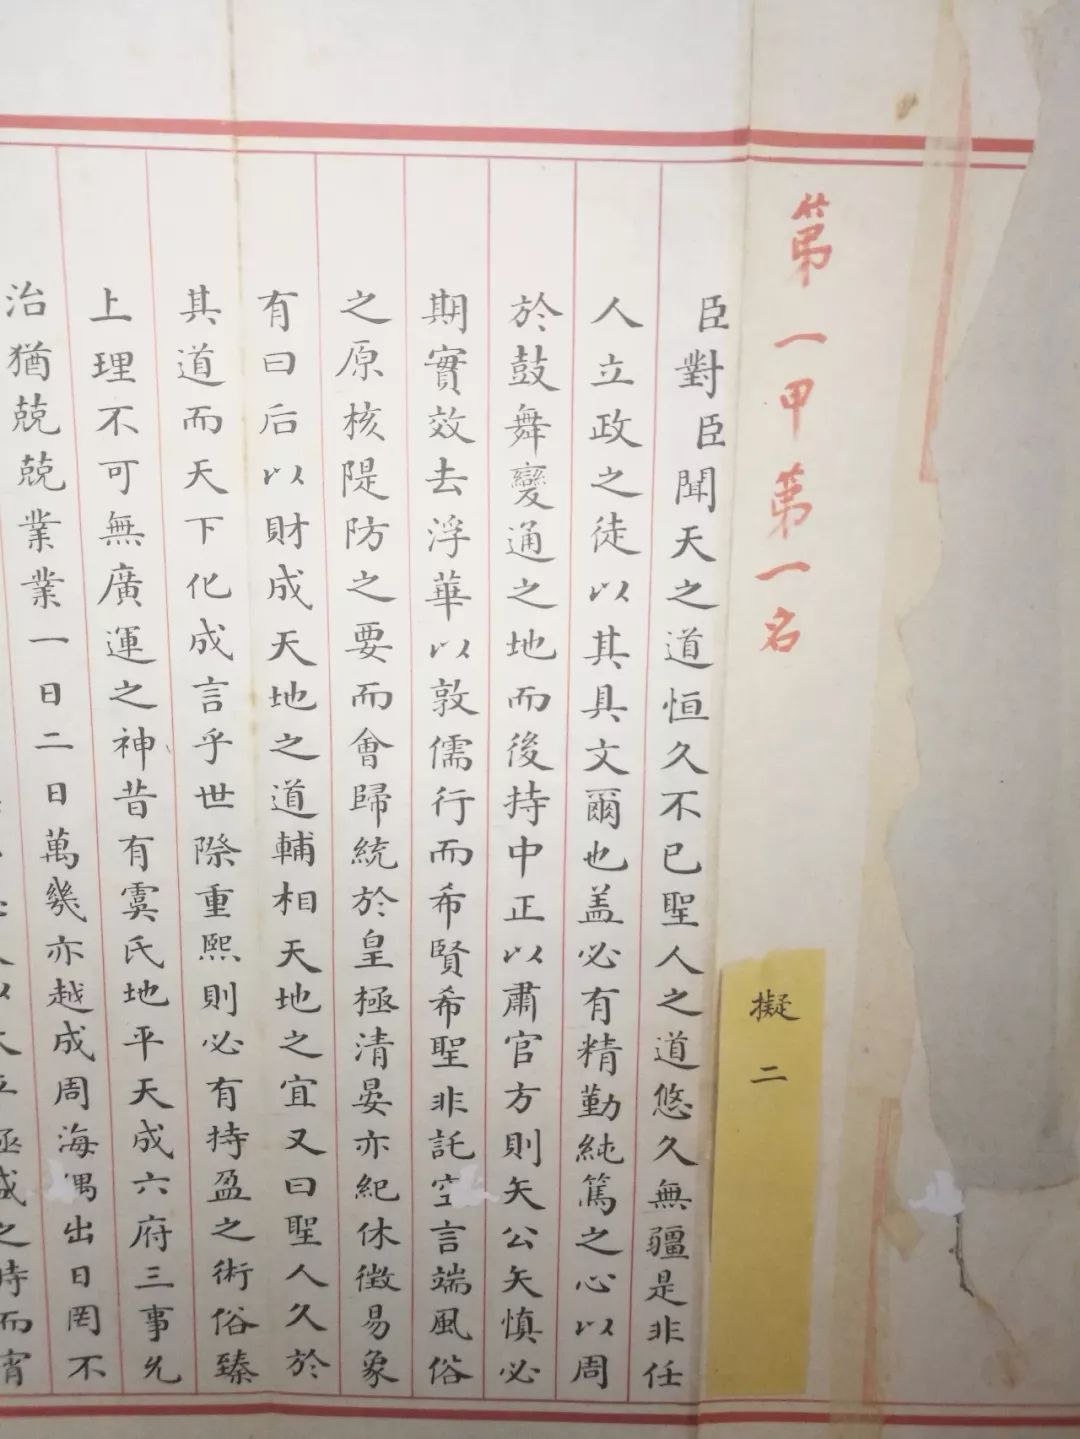 第一甲第一名
擬二
臣對臣聞天之道恒久不已聖人之道悠久無疆是非任
人立政之徒以其具文爾也盖必有精勤純篤之心以周
於鼓舞變通之地而後持中正以肅官方則矢公矢慎必
期實效去浮華以敦儒行而希賢希聖非託空言端風俗
之原核隄防之要而會歸統於皇極清晏亦紀休徵易象
有曰后以財成天地之道輔相天地之宜又曰聖人久於
其道而天下化成言乎世際重熙則必有持盈之術俗臻
上理不可無廣運之神昔有虞氏地平天成六府三事允
治猶兢兢業業一日二日萬幾亦越成周海隅出日罔不
之時而宵